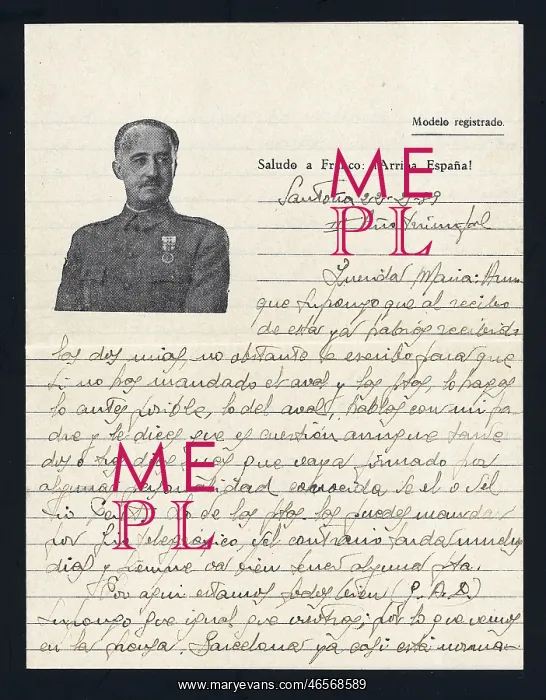 Modelo registrado.
Saludo a Franco: ¡Arriba España!
Santoña 22-2-39
Año Triunfal
Querida Maria: Aun-
que supongo que al recibo
de esta ya habrás recibido
las dos mias, no obstante te escribo para que
si no has mandado el aval y las ptas, lo hagas
lo antes posible, lo del aval, hablas con mi pa-
dre y le dices que es cuestión aunque tarde
dos o tres dias mas que vaya firmado por
alguna personalidad conocida de el o del
tio lo de las ptas las puedes mandar
por giro telegráfico, del contrario tarda muchos
dias y siempre va bien tener alguna pta.
Por aqui estamos todos bien (G. A. D.)
supongo que igual que vosotras; por lo que vemos
en la prensa, Barcelona ya casi está norma-
ME
PL
ME
PL
www.maryevans.com/46568589